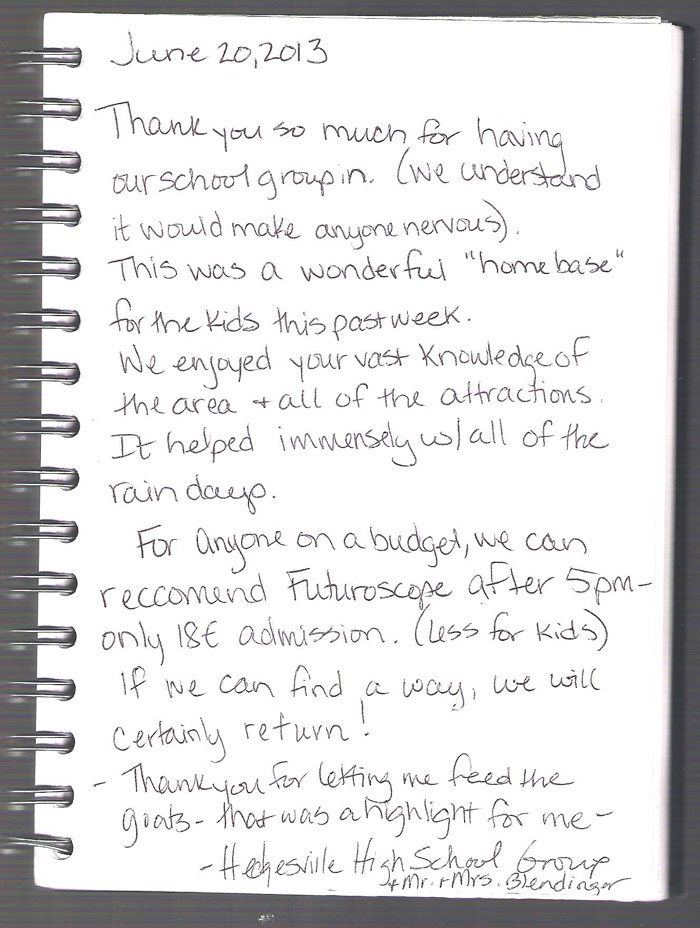 June 20, 2013
Thank you so much for having
our school group in. (we understand
it would make anyone nervous).
This was a wonderful "home base"
for the kids this past week.
We enjoyed your vast knowledge of
the area + all of the attractions.
It helped immensely w/ all of the
rain days.
For anyone on a budget, we can
reccomend Futuroscope after 5pm-
only 18€ admission. (less for kids)
If we can find a way, we will
certainly return!
- Thank you for letting me feed the
goats - that was a highlight for me -
- Hedgesville High School Group
+ Mr. + Mrs. Blendinger